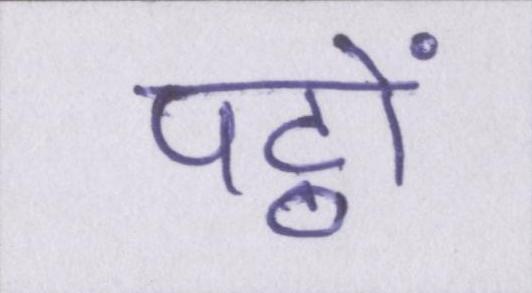 पट्ठों